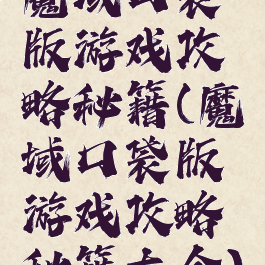 魔域口袋
版游戏攻
略秘籍(魔
域口袋版
游戏攻略
秘籍大全)